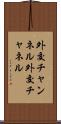 外交チャン
ネル外交チ
ャネル